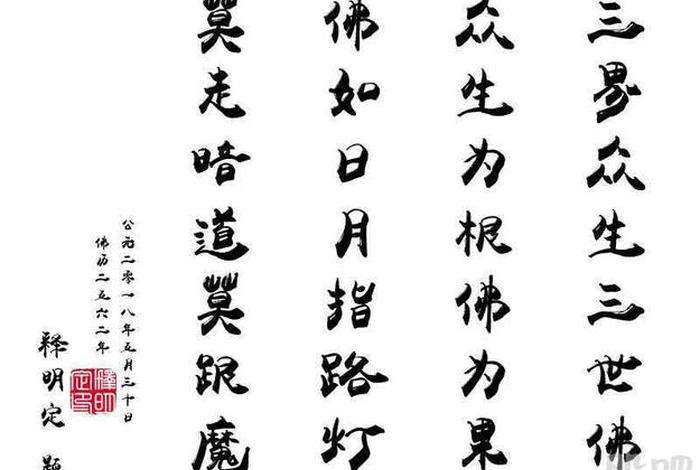 三界众生三世佛
众生为根佛为果
佛如日月指路灯
莫走暗道莫跟魔
公元二零一八年五月三十日
佛历二五六二年
释明定 题
释明定印